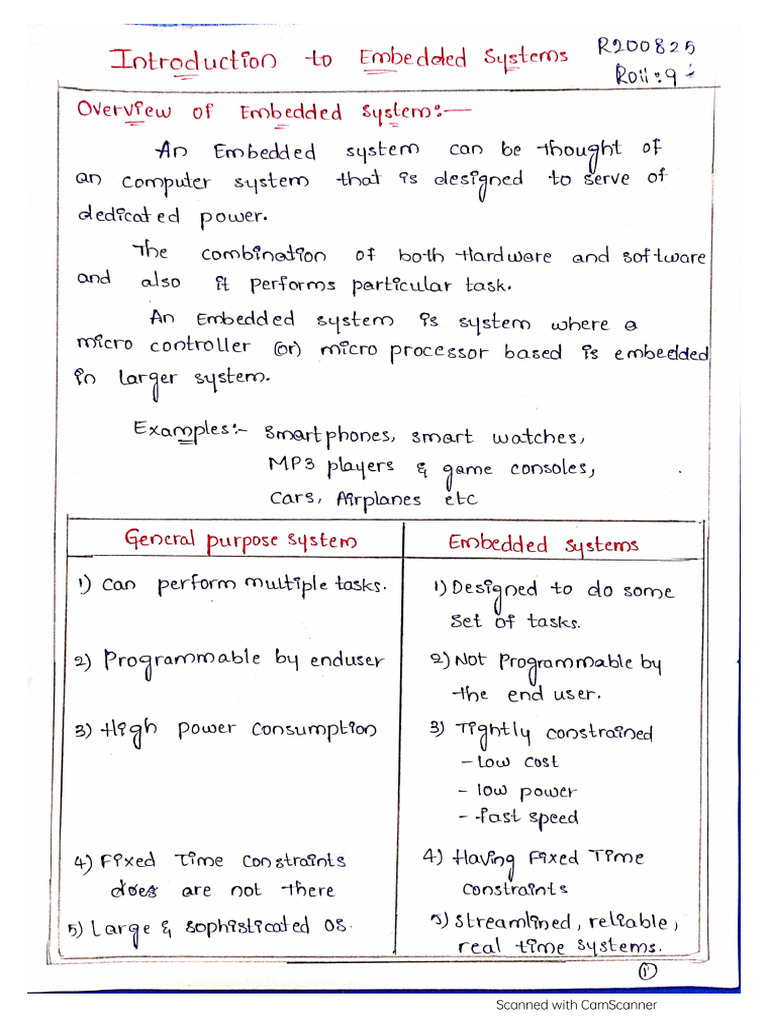 Introduction to Embedded Systems R200825
Roll:9
Overview of Embedded System:-
An Embedded system can be thought of
an computer system that is designed to serve of
dedicated power.
The combination of both Hardware and software
and also it performs particular task.
An Embedded system is system where a
micro controller (or) micro processor based is embedded
in larger system.
Examples:- Smartphones, smart watches,
MP3 players & game consoles,
Cars, Airplanes etc
General purpose System
Embedded Systems
1) Can perform multiple tasks.
1) Designed to do some
set of tasks.
2) Programmable by enduser
2) Not Programmable by
the end user.
3) High power Consumption
3) Tightly constrained
- Low cost
- low power
- fast speed
4) Fixed Time Constraints
does are not there
4) Having Fixed Time
constraints
5) Large & sophisticated OS.
5) Streamlined, reliable,
real time systems.
1
Scanned with CamScanner